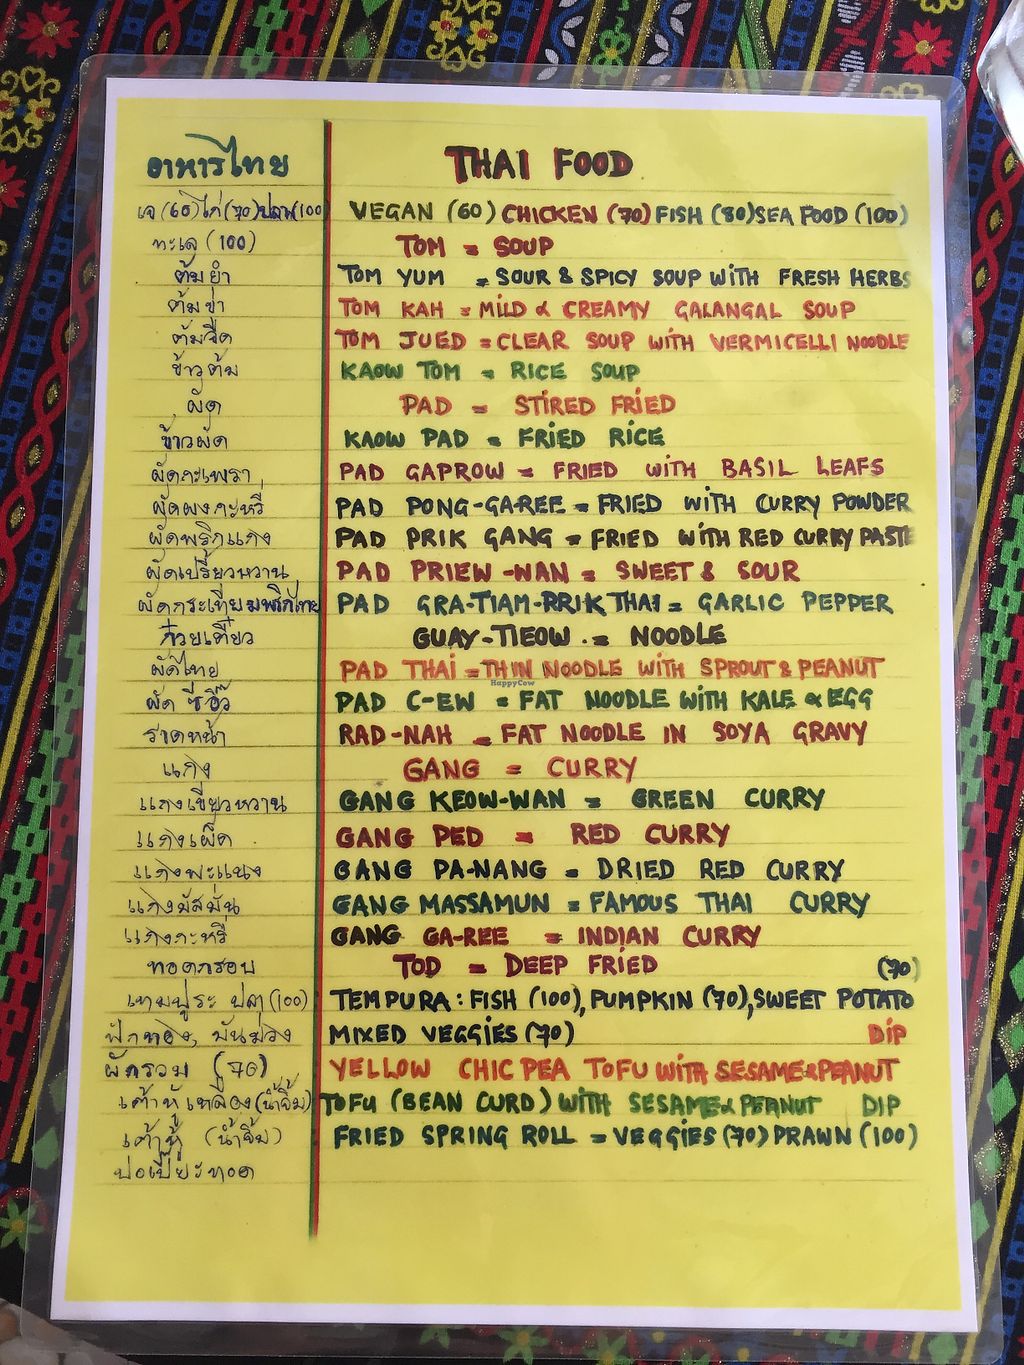 อาหารไทย
THAI FOOD
เจ (60) ไก่ (70) ปลา (100)
VEGAN (60) CHICKEN (70) FISH (80) SEA FOOD (100)
ทะเล (100)
TOM = SOUP
ต้มยำ
TOM YUM = SOUR & SPICY SOUP WITH FRESH HERBS
ต้มข่า
TOM KAH = MILD & CREAMY GALANGAL SOUP
ต้มจืด
TOM JUED = CLEAR SOUP WITH VERMICELLI NOODLE
ข้าวต้ม
KAOW TOM = RICE SOUP
ผัด
PAD = STIRED FRIED
ข้าวผัด
KAOW PAD = FRIED RICE
ผัดกะเพรา
PAD GAPROW = FRIED WITH BASIL LEAFS
ผัดผงกะหรี่
PAD PONG-GA-REE = FRIED WITH CURRY POWDER
ผัดพริกแกง
PAD PRIK GANG = FRIED WITH RED CURRY PASTE
ผัดเปรี้ยวหวาน
PAD PRIEW-WAN = SWEET & SOUR
ผัดกระเทียมพริกไทย
PAD GRA-TIAM-PRIK THAI = GARLIC PEPPER
ก๋วยเตี๋ยว
GUAY-TIEOW = NOODLE
ผัดไทย
PAD THAI = THIN NOODLE WITH SPROUT & PEANUT
HappyCow
ผัดซีอิ๊ว
PAD C-EW = FAT NOODLE WITH KALE & EGG
ราดหน้า
RAD-NAH = FAT NOODLE IN SOYA GRAVY
แกง
GANG = CURRY
แกงเขียวหวาน
GANG KEOW-WAN = GREEN CURRY
แกงเผ็ด
GANG PED = RED CURRY
แกงพะแนง
GANG PA-NANG = DRIED RED CURRY
แกงมัสมั่น
GANG MASSAMUN = FAMOUS THAI CURRY
แกงกะหรี่
GANG GA-REE = INDIAN CURRY
ทอดกรอบ
TOD = DEEP FRIED (70)
เทมปูระ ปลา (100)
TEMPURA: FISH (100), PUMPKIN (70), SWEET POTATO
ฟักทอง, มันม่วง
MIXED VEGGIES (70) DIP
ผักรวม (70)
YELLOW CHIC PEA TOFU WITH SESAME & PEANUT
เต้าหู้เหลือง (น้ำจิ้ม)
TOFU (BEAN CURD) WITH SESAME & PEANUT DIP
เต้าหู้ (น้ำจิ้ม)
FRIED SPRING ROLL = VEGGIES (70) PRAWN (100)
ปอเปี๊ยะทอด